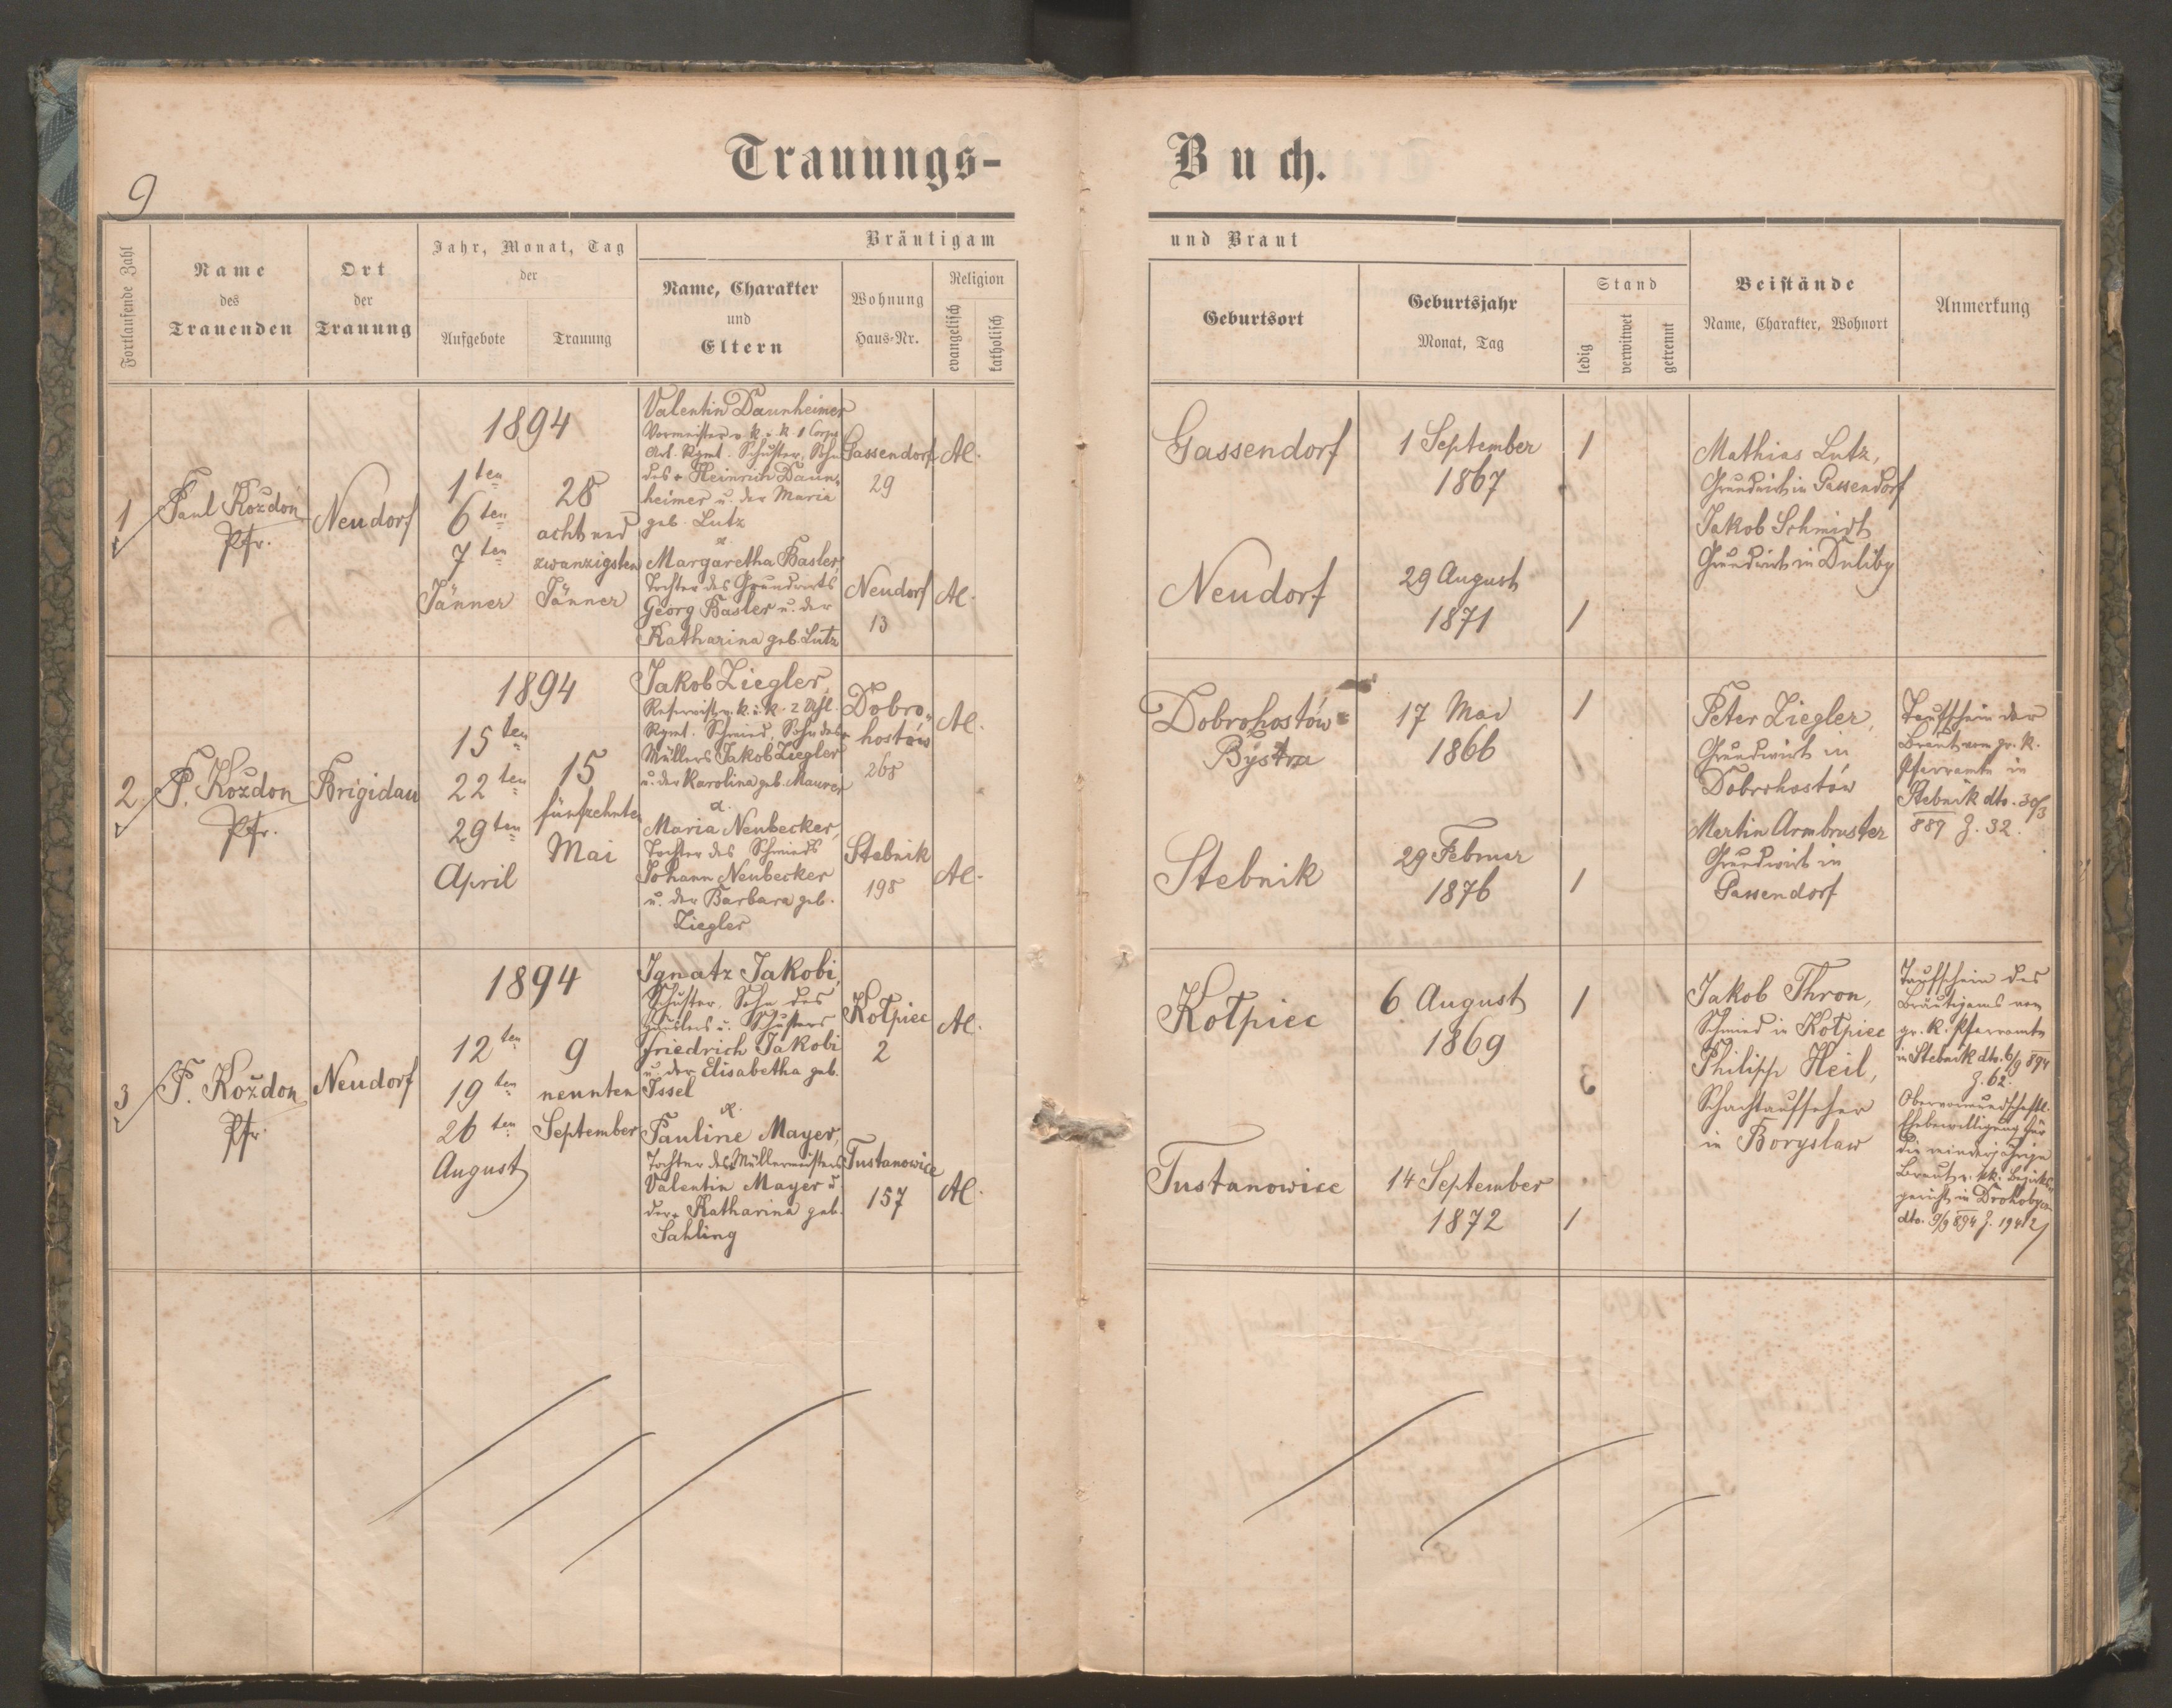 Trauungs-Buch.
9
Fortlaufende Zahl
Name
des
Trauenden
Ort
der
Trauung
Jahr, Monat, Tag
der
Aufgebote
Trauung
Bräutigam und Braut
Name, Charakter
und
Eltern
Wohnung
Haus-Nr.
Religion
evangelisch
katholisch
Geburtsort
Geburtsjahr
Monat, Tag
Stand
ledig
verwitwet
getrennt
Beistände
Name, Charakter, Wohnort
Anmerkung
1
Paul Kozdon
Pfr.
Neudorf
1894
1ten
6ten
7ten
Jänner
28
acht und
zwanzigsten
Jänner
Valentin Daunheimer
Vormeister v. k. u. k. 1 Corps
Art. Rgmt. Schuster, Sohn
des + Heinrich Daun-
heimer u. der Maria
geb. Lutz
&
Margaretha Basler,
Tochter des Grundwirts
Georg Basler u. der
Katharina geb. Lutz
Gassendorf
29
AC.
Neudorf
13
AC.
Gassendorf
1 September
1867
1
Neudorf
29 August
1871
1
Mathias Lutz,
Grundwirt in Gassendorf
Jakob Schmidt
Grundwirt in Duliby
2
P. Kozdon
Pfr.
Brigidau
1894
15ten
22ten
29ten
April
15
fünfzehnten
Mai
Jakob Ziegler,
Reservist v. k. u. k. 2 Uhl.
Rgmt. Schmied, Sohn des
Müllers Jakob Ziegler
u. der Karolina geb. Maurer
&
Maria Neubecker,
Tochter des Schmieds
Johann Neubecker
u. der Barbara geb.
Ziegler
Dobro-
hostów
268
AC.
Stebnik
198
AC.
Dobrohostów-
Bystra
17 Mai
1866
1
Stebnik
29 Februar
1876
1
Peter Ziegler,
Grundwirt in
Dobrohostów
Martin Armbruster
Grundwirt in
Gassendorf
Taufschein der
Braut vom gr. k.
Pfarramte in
Stebnik dto. 30/3
887 Z. 32.
3
P. Kozdon
Pfr.
Neudorf
1894
12ten
19ten
26ten
August
9
neunten
September
Ignatz Jakobi,
Schuster, Sohn des
Häuslers u. Schusters
Friedrich Jakobi
u. der Elisabetha geb.
Issel
&
Pauline Mayer,
Tochter des Müllermeisters
Valentin Mayer u.
der + Katharina geb.
Sahling
Kotpiec
2
AC.
Tustanowice
157
AC.
Kotpiec
6 August
1869
1
Tustanowice
14 September
1872
1
Jakob Thron,
Schmied in Kotpiec
Philipp Heil,
Schachtaufseher
in Boryslaw
Taufschein des
Bräutigams vom
gr. k. Pfarramte
in Stebnik dto. 6/9 894
Z. 62.
Obervormundschaftl.
Ehebewilligung für
die minderjährige
Braut v. kk. Bezirks-
gericht in Drohobycz
dto. 9/9 894 Z. 19412